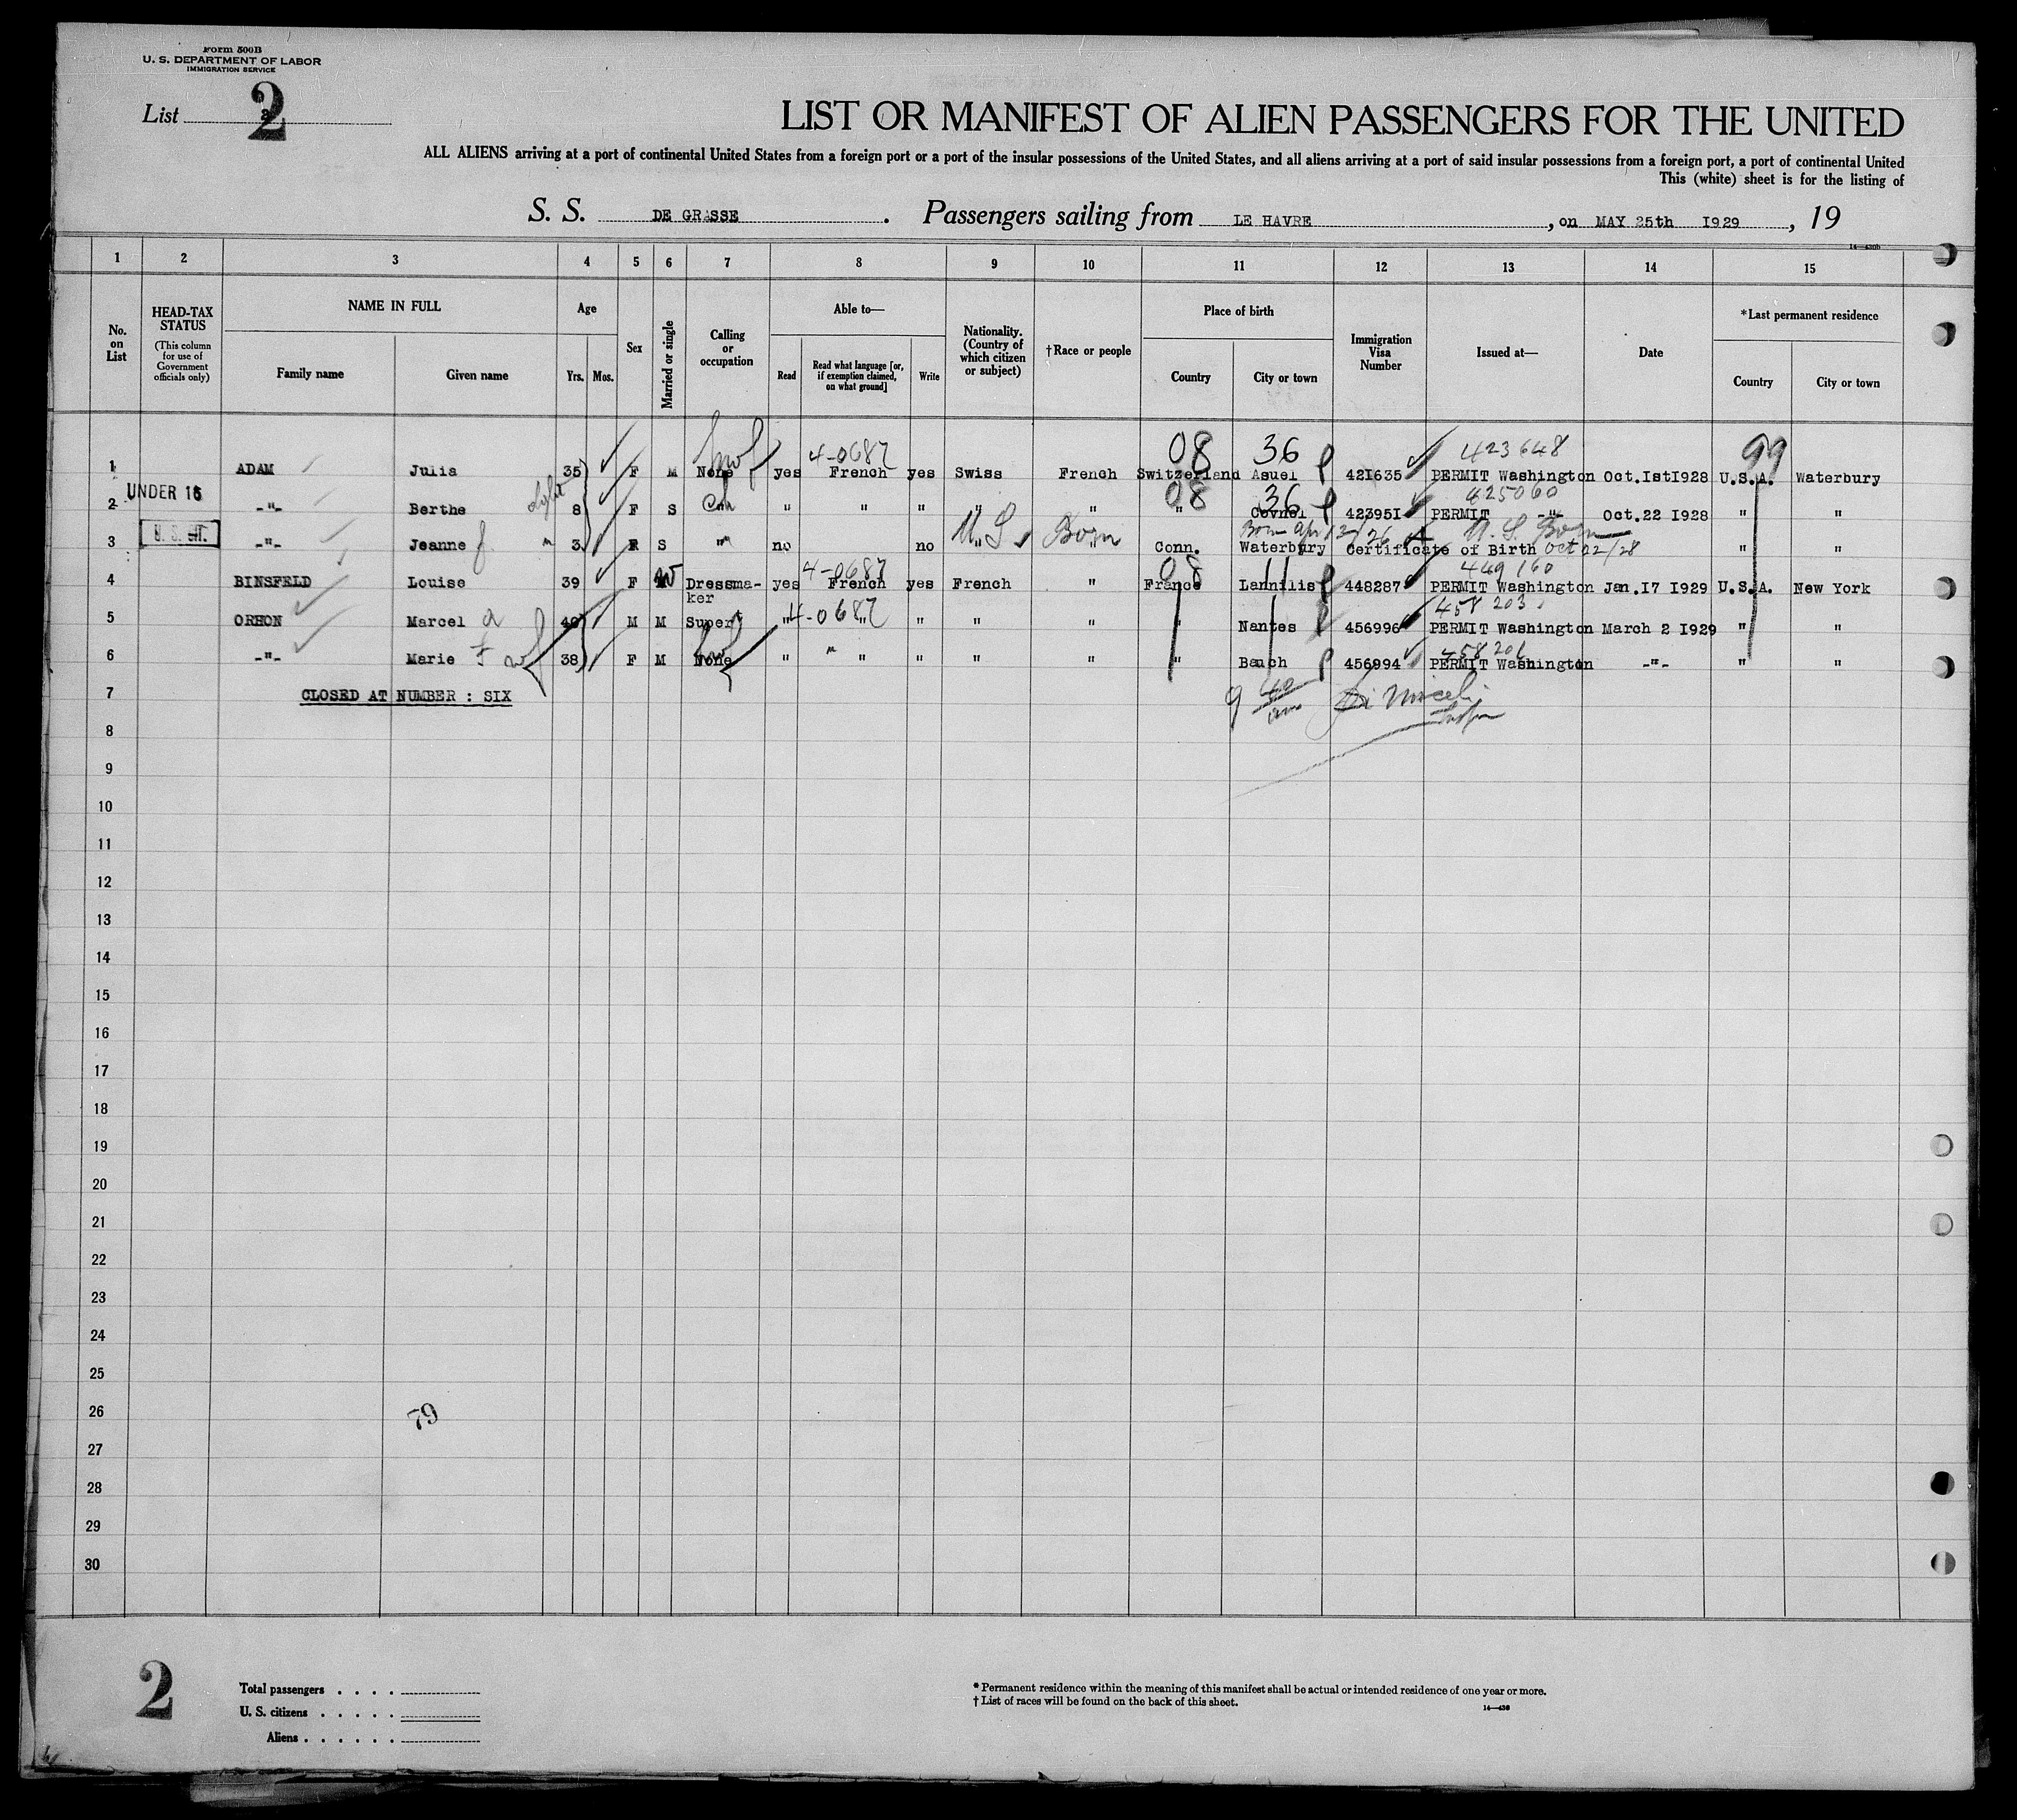 Form 500B
U. S. DEPARTMENT OF LABOR
IMMIGRATION SERVICE
List 2
LIST OR MANIFEST OF ALIEN PASSENGERS FOR THE UNITED
ALL ALIENS arriving at a port of continental United States from a foreign port or a port of the insular possessions of the United States, and all aliens arriving at a port of said insular possessions from a foreign port, a port of continental United
This (white) sheet is for the listing of
S. S. DE GRASSE. Passengers sailing from LE HAVRE, on MAY 25th 1929, 19
1 2 3 4 5 6 7 8 9 10 11 12 13 14 15
No. on List
HEAD-TAX STATUS (This column for use of Government officials only)
NAME IN FULL
Family name Given name
Age
Yrs. Mos.
Sex
Married or single
Calling or occupation
Able to—
Read
Read what language [or, if exemption claimed, on what ground]
Write
Nationality. (Country of which citizen or subject)
†Race or people
Place of birth
Country City or town
Immigration Visa Number
Issued at—
Date
*Last permanent residence
Country City or town
4-0687 08 36 423648 99
1 ADAM Julia 35 F M None yes French yes Swiss French Switzerland Asuel 421635 PERMIT Washington Oct.1st1928 U.S.A. Waterbury
UNDER 16 08 36 425060
2 -"- Berthe 8 F S " " " " " " 423951 PERMIT -"- Oct.22 1928 " "
U.S. Born Born U.S. Born
3 -"- Jeanne 3 F S " no no " " Conn. Waterbury Certificate of Birth Oct 22/28 " "
4-0687 08 11 449160
4 BINSFELD Louise 39 F W Dressma- yes French yes French " France Lannilis 448287 PERMIT Washington Jan.17 1929 U.S.A. New York
ker
4-0687 458203
5 ORHON Marcel a 40 M M Super " " " " " " Nantes 456996 PERMIT Washington March 2 1929 " "
458206
6 -"- Marie F 38 F M None " " " " " " 456994 PERMIT Washington -"- " "
7 CLOSED AT NUMBER : SIX
8
9
10
11
12
13
14
15
16
17
18
19
20
21
22
23
24
25
26
79
27
28
29
30
2
Total passengers . . . .
U. S. citizens . . . . .
Aliens . . . . . .
* Permanent residence within the meaning of this manifest shall be actual or intended residence of one year or more.
† List of races will be found on the back of this sheet.